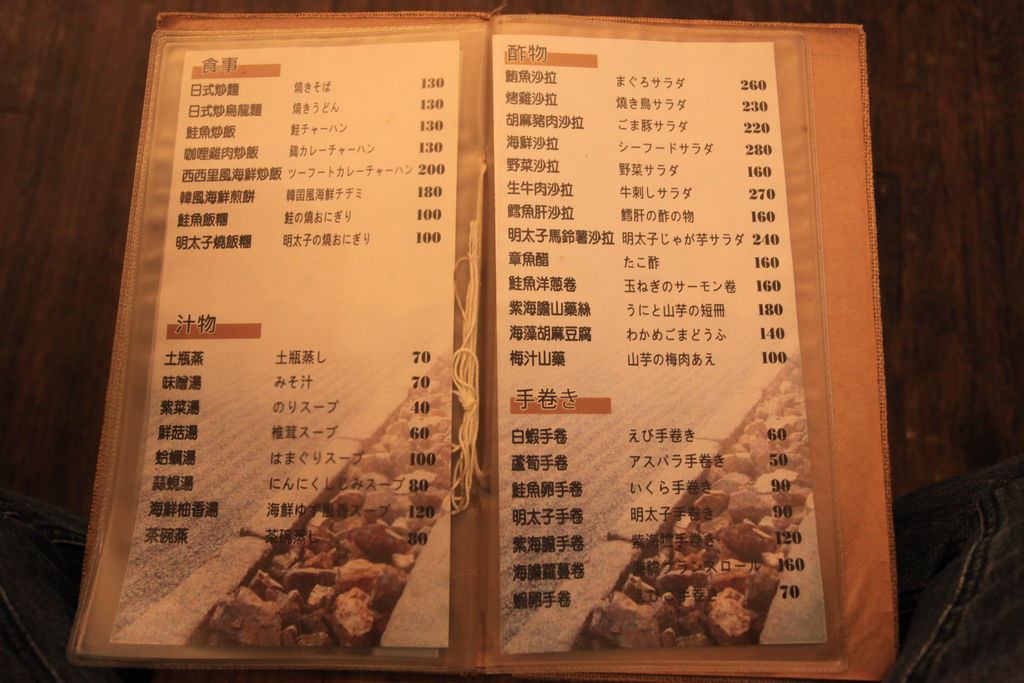 食事
日式炒麵 焼きそば 130
日式炒烏龍麵 焼きうどん 130
鮭魚炒飯 鮭チャーハン 130
咖哩雞肉炒飯 鶏カレーチャーハン 130
西西里風海鮮炒飯 ツーフートカレーチャーハン 200
韓風海鮮煎餅 韓国風海鮮チヂミ 180
鮭魚飯糰 鮭の焼おにぎり 100
明太子燒飯糰 明太子の焼おにぎり 100
汁物
土瓶蒸 土瓶蒸し 70
味噌湯 みそ汁 70
紫菜湯 のりスープ 40
鮮菇湯 椎茸スープ 60
蛤蠣湯 はまぐりスープ 100
蒜蜆湯 にんにくしじみスープ 80
海鮮柚香湯 海鮮ゆず風香スープ 120
茶碗蒸 茶碗蒸し 80
酢物
鮪魚沙拉 まぐろサラダ 260
烤雞沙拉 焼き鳥サラダ 230
胡麻豬肉沙拉 ごま豚サラダ 220
海鮮沙拉 シーフードサラダ 280
野菜沙拉 野菜サラダ 160
生牛肉沙拉 牛刺しサラダ 270
鱈魚肝沙拉 鱈肝の酢の物 160
明太子馬鈴薯沙拉 明太子じゃが芋サラダ 240
章魚醋 たこ酢 160
鮭魚洋蔥卷 玉ねぎのサーモン巻 160
紫海膽山藥絲 うにと山芋の短冊 180
海藻胡麻豆腐 わかめごまどうふ 140
梅汁山藥 山芋の梅肉あえ 100
手巻き
白蝦手卷 えび手巻き 60
蘆筍手卷 アスパラ手巻き 50
鮭魚卵手卷 いくら手巻き 90
明太子手卷 明太子手巻き 90
紫海膽手卷 紫海胆手巻き 120
海膽蘿蔓卷 ロール 160
蝦卵手卷 えびこ手巻き 70